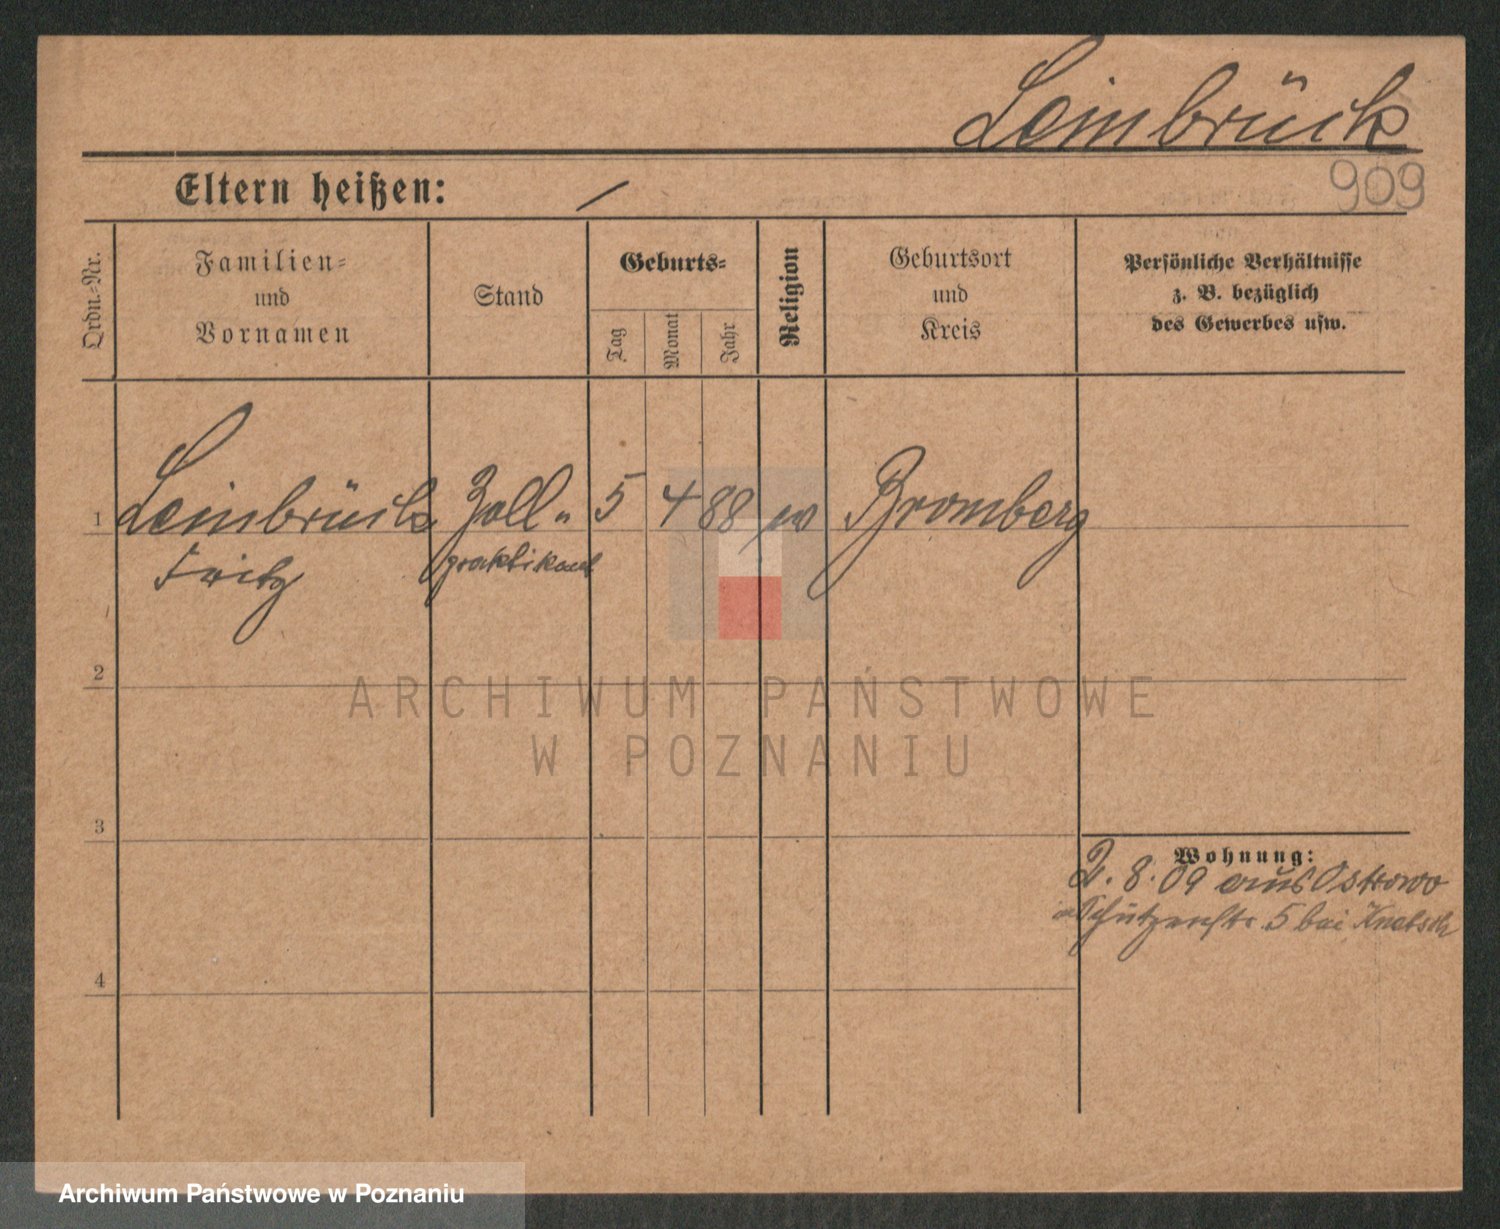 Leinbrück
909
Eltern heißen: /
Ordn.-Nr.
Familien-
und
Vornamen
Stand
Geburts-
Tag
Monat
Jahr
Religion
Geburtsort
und
Kreis
Persönliche Verhältnisse
z. B. bezüglich
des Gewerbes usw.
1 Leinbrück Zoll- 5 4 88 ev Bromberg
Fritz praktikant
2
ARCHIWUM PAŃSTWOWE
W POZNANIU
3
Wohnung:
2. 8. 09 aus Ostrowo
Schützenstr. 5 bei
4
Archiwum Państwowe w Poznaniu